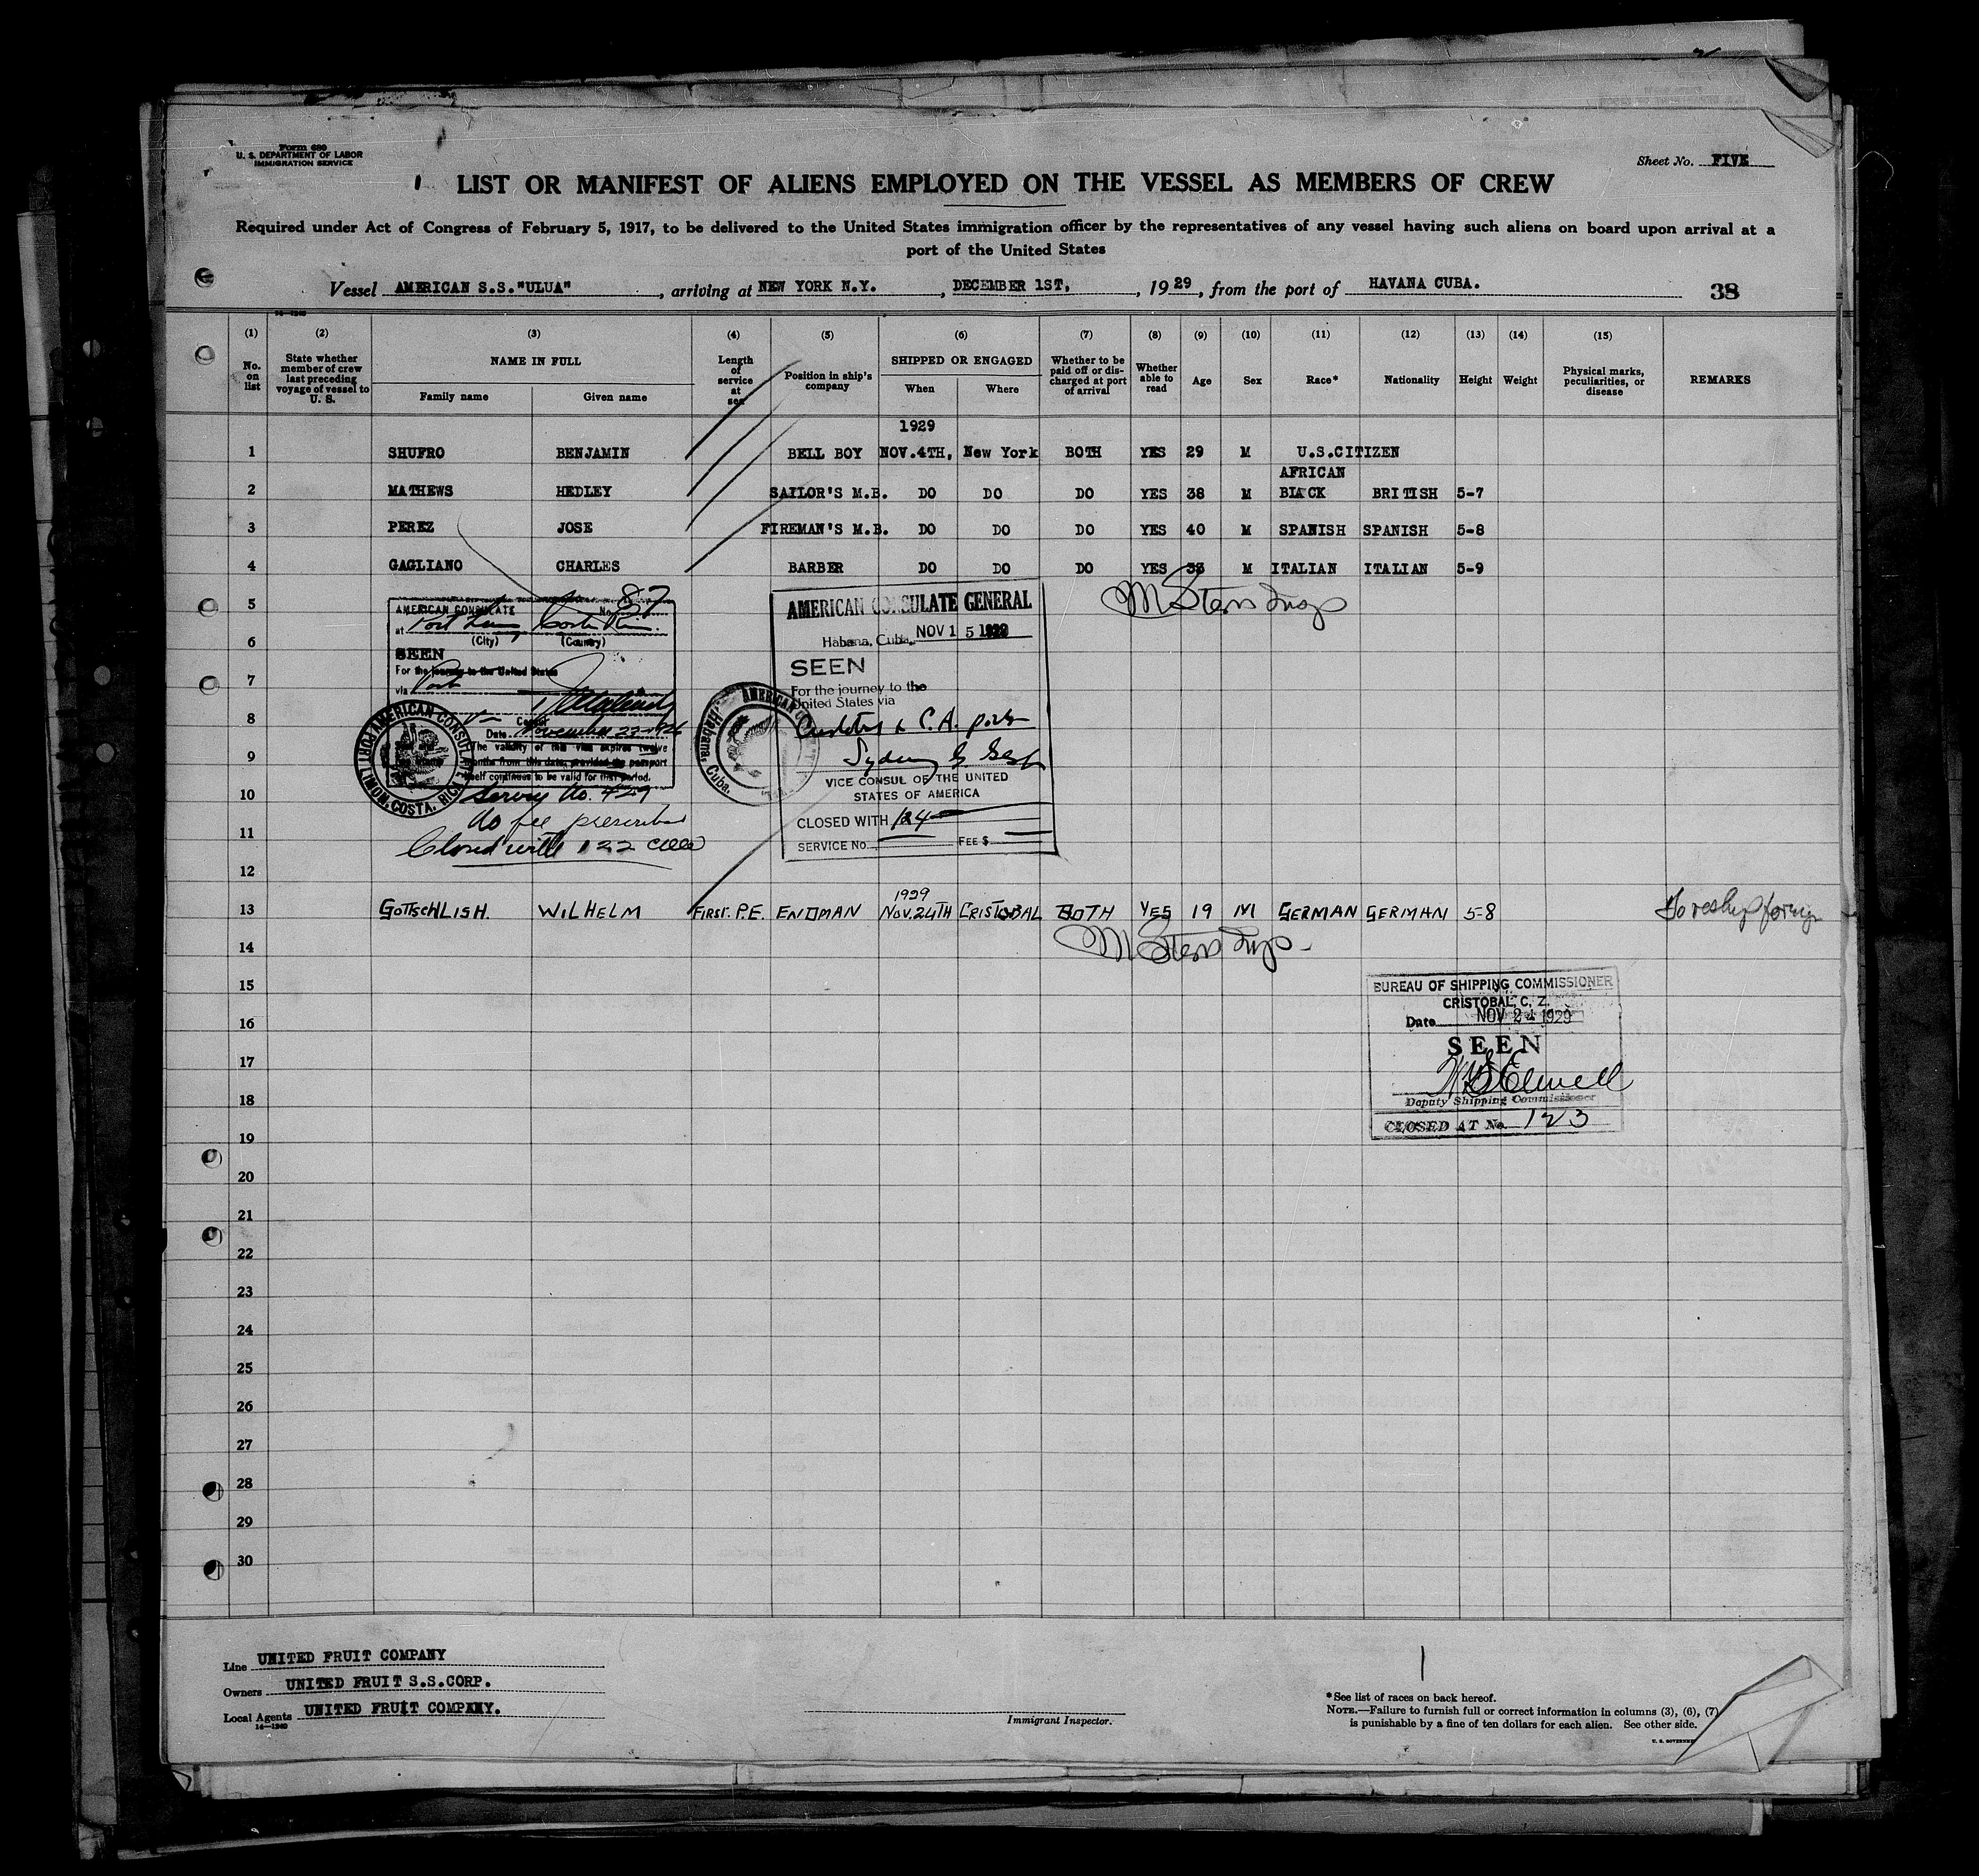 Form 680
U. S. DEPARTMENT OF LABOR
IMMIGRATION SERVICE
Sheet No. FIVE
LIST OR MANIFEST OF ALIENS EMPLOYED ON THE VESSEL AS MEMBERS OF CREW
Required under Act of Congress of February 5, 1917, to be delivered to the United States immigration officer by the representatives of any vessel having such aliens on board upon arrival at a
port of the United States
Vessel AMERICAN S.S."ULUA", arriving at NEW YORK N.Y., DECEMBER 1ST, , 1929, from the port of HAVANA CUBA. 38
(1) (2) (3) (4) (5) (6) (7) (8) (9) (10) (11) (12) (13) (14) (15)
No. on list
State whether member of crew last preceding voyage of vessel to U. S.
NAME IN FULL
Family name Given name
Length of service at sea
Position in ship's company
SHIPPED OR ENGAGED
When Where
Whether to be paid off or discharged at port of arrival
Whether able to read
Age
Sex
Race*
Nationality
Height
Weight
Physical marks, peculiarities, or disease
REMARKS
1929
1 SHUFRO BENJAMIN BELL BOY NOV.4TH, New York BOTH YES 29 M U.S.CITIZEN
AFRICAN
2 MATHEWS HEDLEY SAILOR'S M.B. DO DO DO YES 38 M BLACK BRITISH 5-7
3 PEREZ JOSE FIREMAN'S M.B. DO DO DO YES 40 M SPANISH SPANISH 5-8
4 GAGLIANO CHARLES BARBER DO DO DO YES 33 M ITALIAN ITALIAN 5-9
5
6
7
8
9
10
11
12
AMERICAN CONSULATE No. 87
at Port Limon, Costa Rica.
(City) (Country)
SEEN
For the journey to the United States
via
Consul
Date November 23-1929
The validity of this visa expires twelve
months from this date, provided the passport
itself continues to be valid for that period.
AMERICAN CONSULATE
PORT LIMON, COSTA RICA
Service No. 429
No fee prescribed
Closed with 122
AMERICAN CONSULATE GENERAL
Habana, Cuba. NOV 15 1929
SEEN
For the journey to the
United States via
Cristobal & C.A. ports
Sydney G.
VICE CONSUL OF THE UNITED
STATES OF AMERICA
CLOSED WITH 124
SERVICE No. FEE $
Habana, Cuba.
M Stern Insp
1929
13 GOTTSCHLISH. WILHELM FIRST. P.E. ENDMAN NOV.24TH CRISTOBAL BOTH YES 19 M GERMAN GERMAN 5-8 To reship foreign
M Stern Insp-
14
15
16
17
18
19
20
21
22
23
24
25
26
27
28
29
30
BUREAU OF SHIPPING COMMISSIONER
CRISTOBAL, C. Z.
Date NOV 24 1929
SEEN
Deputy Shipping Commissioner
CLOSED AT No. 123
Line UNITED FRUIT COMPANY
Owners UNITED FRUIT S.S.CORP.
Local Agents UNITED FRUIT COMPANY.
14—1240
Immigrant Inspector.
*See list of races on back hereof.
NOTE.—Failure to furnish full or correct information in columns (3), (6), (7)
is punishable by a fine of ten dollars for each alien. See other side.